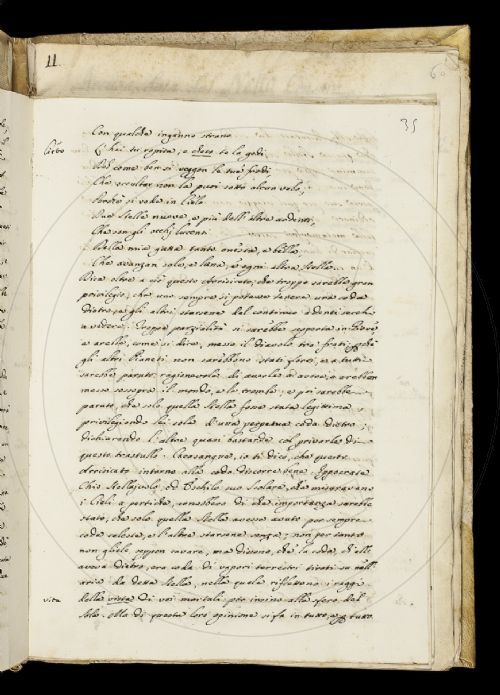 11.
60
35
Con qualche inganno strano
Cielo
L'hai tu rapita, e cieco te la godi.
Ma come ben si veggon le tue frodi,
Che occultar non la puoi sotto alcun velo,
Perchè si vede in Cielo
Due Stelle nuove, e più dell'altre ardenti,
Che son gli occhj lucenti
Della mia gatta tanto onesta, e bella,
Che avanzan sole, e luna, e ogni altra stella.
Dica oltre a ciò questo dottrinato, che troppo sarebbe gran
privilegio, che uno sempre si potesse tenere una coda
dietro, e gli altri starsene del continuo a denti secchi
a vedere. Troppa parzialità si sarebbe scoperta in Giove
e arebbe, come si dice, messo il diavolo tra' frati, perchè
gli altri Pianeti non sarebbono stati forti, e a tutti
sarebbe paruto ragionevole di averla ancora, e arebbon
messo sossopra il mondo, e lo tromba, e pur sarebbe
paruto, che solo quella stella fosse stata legittima,
privilegiando lei sola d'una perpetua coda dietro;
dichiarando l'altre quasi bastarde col privarle di
questo trastullo. Checchesia, io ti dico, che questo
dottrinato intorno alla coda discorre bene. Ippocrate
Chio Stellajuolo ed Eschilo suo scolare, che misuravano
i Cieli a pertiche, conobbero di che importanza sarebbe
stato, che solo quella Stella avesse avuto per sempre
coda celeste, e l'altre starsene senza; non per tanto
non gliele seppon cavare, ma dissono, che la coda, ch'ella
aveva dietro, era coda di vapori terrestri tirati su nell'
aria da detta Stella, nella quale riflettono i raggi
vita
della vista di voi mortali per insino alla sfera del
Sole. Ma di questa loro opinione si fa in tutto, e per tutto